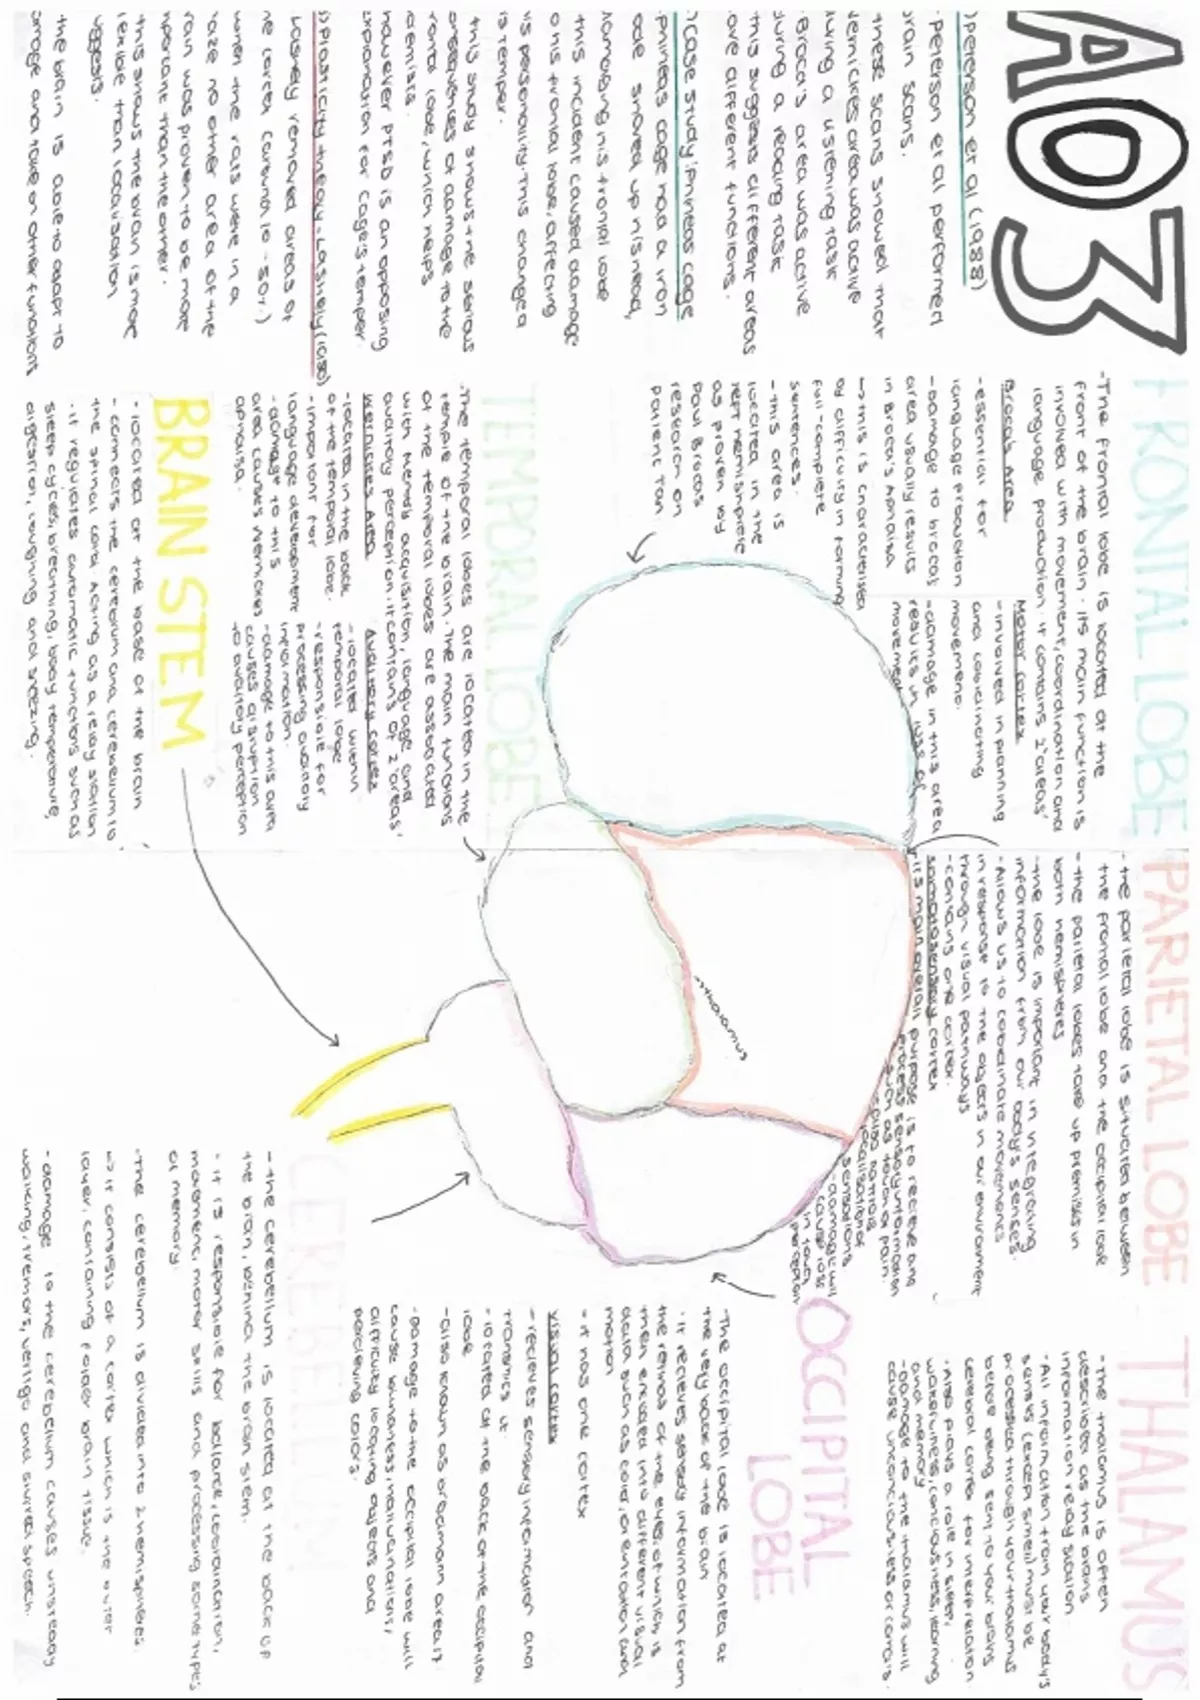 AO3
Peterson et al (1988)
Peterson et al performed
brain scans.
these scans showed that
wernickes area was active
during a listening task
Broca's area was active
during a reading task
this suggests different areas
have different functions.
case study: phineas Gage
phineas Gage had a iron
pole shoved up his head,
damaging his frontal lobe
this incident caused damage
to his frontal lobe, affecting
his personality. This changed
his temper.
this study shows the serious
consequences of damage to the
frontal lobe, which helps
scientists.
however PTSD is an opposing
explanation for Gage's temper
plasticity theory - Lashley (1950)
Lashley removed areas of
the cortex (around 10-50%)
when the rats were in a
maze no other area of the
brain was proven to be more
important than the other.
this shows the brain is more
flexible than localisation
suggests.
the brain is able to adapt to
damage and take on other functions
FRONTAL LOBE
-The frontal lobe is located at the
front of the brain. its main function is
involved with movement, coordination and
language production. it contains 2 'areas'
Broca's Area
-essential for
language production
-Damage to brocas
area usually results
in Broca's Aphasia
→this is characterised
by difficulty in forming
full-complete
sentences.
-this area is
located in the
left hemisphere
as proven by
Paul Brocas
research on
patient Tan.
Motor cortex
-involved in planning
and coordinating
movement.
-damage in this area
results in loss of
movement
TEMPORAL LOBE
-The temporal lobes are located in the
temple of the brain. The main functions
of the temporal lobes are associated
with memory acquisition, language and
auditory perception. it contains of 2 'areas'
Wernickes Area
-located in the back
of the temporal lobe.
-important for
language development
-damage to this
area causes Wernickes
aphasia.
Auditory cortex
-located within
temporal lobe
-responsible for
processing auditory
information.
-damage to this area
causes disruption
to auditory perception
BRAIN STEM
- located at the base of the brain
- connects the cerebrum and cerebellum to
the spinal cord. Acting as a relay station
- it regulates automatic functions such as
sleep cycles, breathing, body temperature,
digestion, coughing and sneezing.
PARIETAL LOBE
- the parietal lobe is situated between
the frontal lobe and the occipital lobe
-the parietal lobes take up premises in
both hemispheres
-the lobe is important in integrating
information from our body's senses.
-Allows us to coordinate movements
in response to the objects in our environment
through visual pathways
-contains one cortex.
somatosensory cortex
its main overall purpose is to recieve and
process sensory information
such as touch or pain.
localisation of
sensations
-damage will
cause loss
in touch
perception
→thalamus
THALAMUS
-The thalamus is often
described as the brains
information relay station
-All information from your body's
senses (except smell) must be
processed through your thalamus
before being sent to your brains
cerebral cortex for interpretation
-Also plays a role in sleep,
wakefulness, conciousness, learning
and memory
-Damage to the thalamus will
cause unconciousness or coma's.
OCCIPITAL
LOBE
-The occipital lobe is located at
the very back of the brain
-it recieves sensory information from
the retinas of the eyes, of which is
then encoded into different visual
data such as color, orientation and
motion
- it has one cortex
visual cortex
-recieves sensory information and
transmits it.
-located at the back of the occipital
lobe
-also known as brodmann area 17.
-Damage to the occipital lobe will
cause blindness, hallucinations,
difficulty locating objects and
percieving colors.
CEREBELLUM
-the cerebellum is located at the back of
the brain, behind the brain stem.
-it is responsible for balance, coordination,
movement, motor skills and processing some types
of memory.
-The cerebellum is divided into 2 hemispheres.
→ it consists of a cortex which is the outer
layer, containing folded brain tissue.
-damage to the cerebellum causes unsteady
walking, tremors, vertigo and slurred speech.